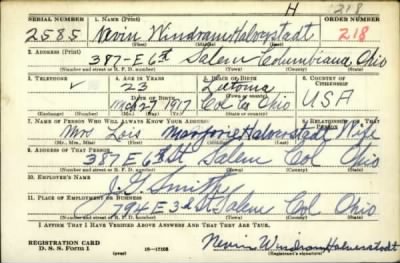 H 218
SERIAL NUMBER 1. NAME (Print) ORDER NUMBER
2585 Nevin Windram Halverstadt 218
(First) (Middle) (Last)
2. ADDRESS (Print)
387-E 6th Salem Columbiana Ohio
(Number and street or R. F. D. number) (Town) (County) (State)
3. TELEPHONE 4. AGE IN YEARS 5. PLACE OF BIRTH 6. COUNTRY OF CITIZENSHIP
23 Letonia
DATE OF BIRTH
27 1917 Col Co Ohio USA
(Mo.) (Day) (Yr.) (State or country)
7. NAME OF PERSON WHO WILL ALWAYS KNOW YOUR ADDRESS 8. RELATIONSHIP OF THAT PERSON
Mrs Lois Marjorie Halverstadt Wife
(Mr., Mrs., Miss) (First) (Middle) (Last)
9. ADDRESS OF THAT PERSON
387 E 6th St Salem Col Ohio
(Number and street or R. F. D. number) (Town) (County) (State)
10. EMPLOYER'S NAME
Smith
11. PLACE OF EMPLOYMENT OR BUSINESS
794 E 3rd St Salem Col Ohio
(Number and street or R. F. D. number) (Town) (County) (State)
I AFFIRM THAT I HAVE VERIFIED ABOVE ANSWERS AND THAT THEY ARE TRUE.
REGISTRATION CARD
D. S. S. Form 1 (over) 16-17105 Nevin Windram Halverstadt
(Registrant's signature)